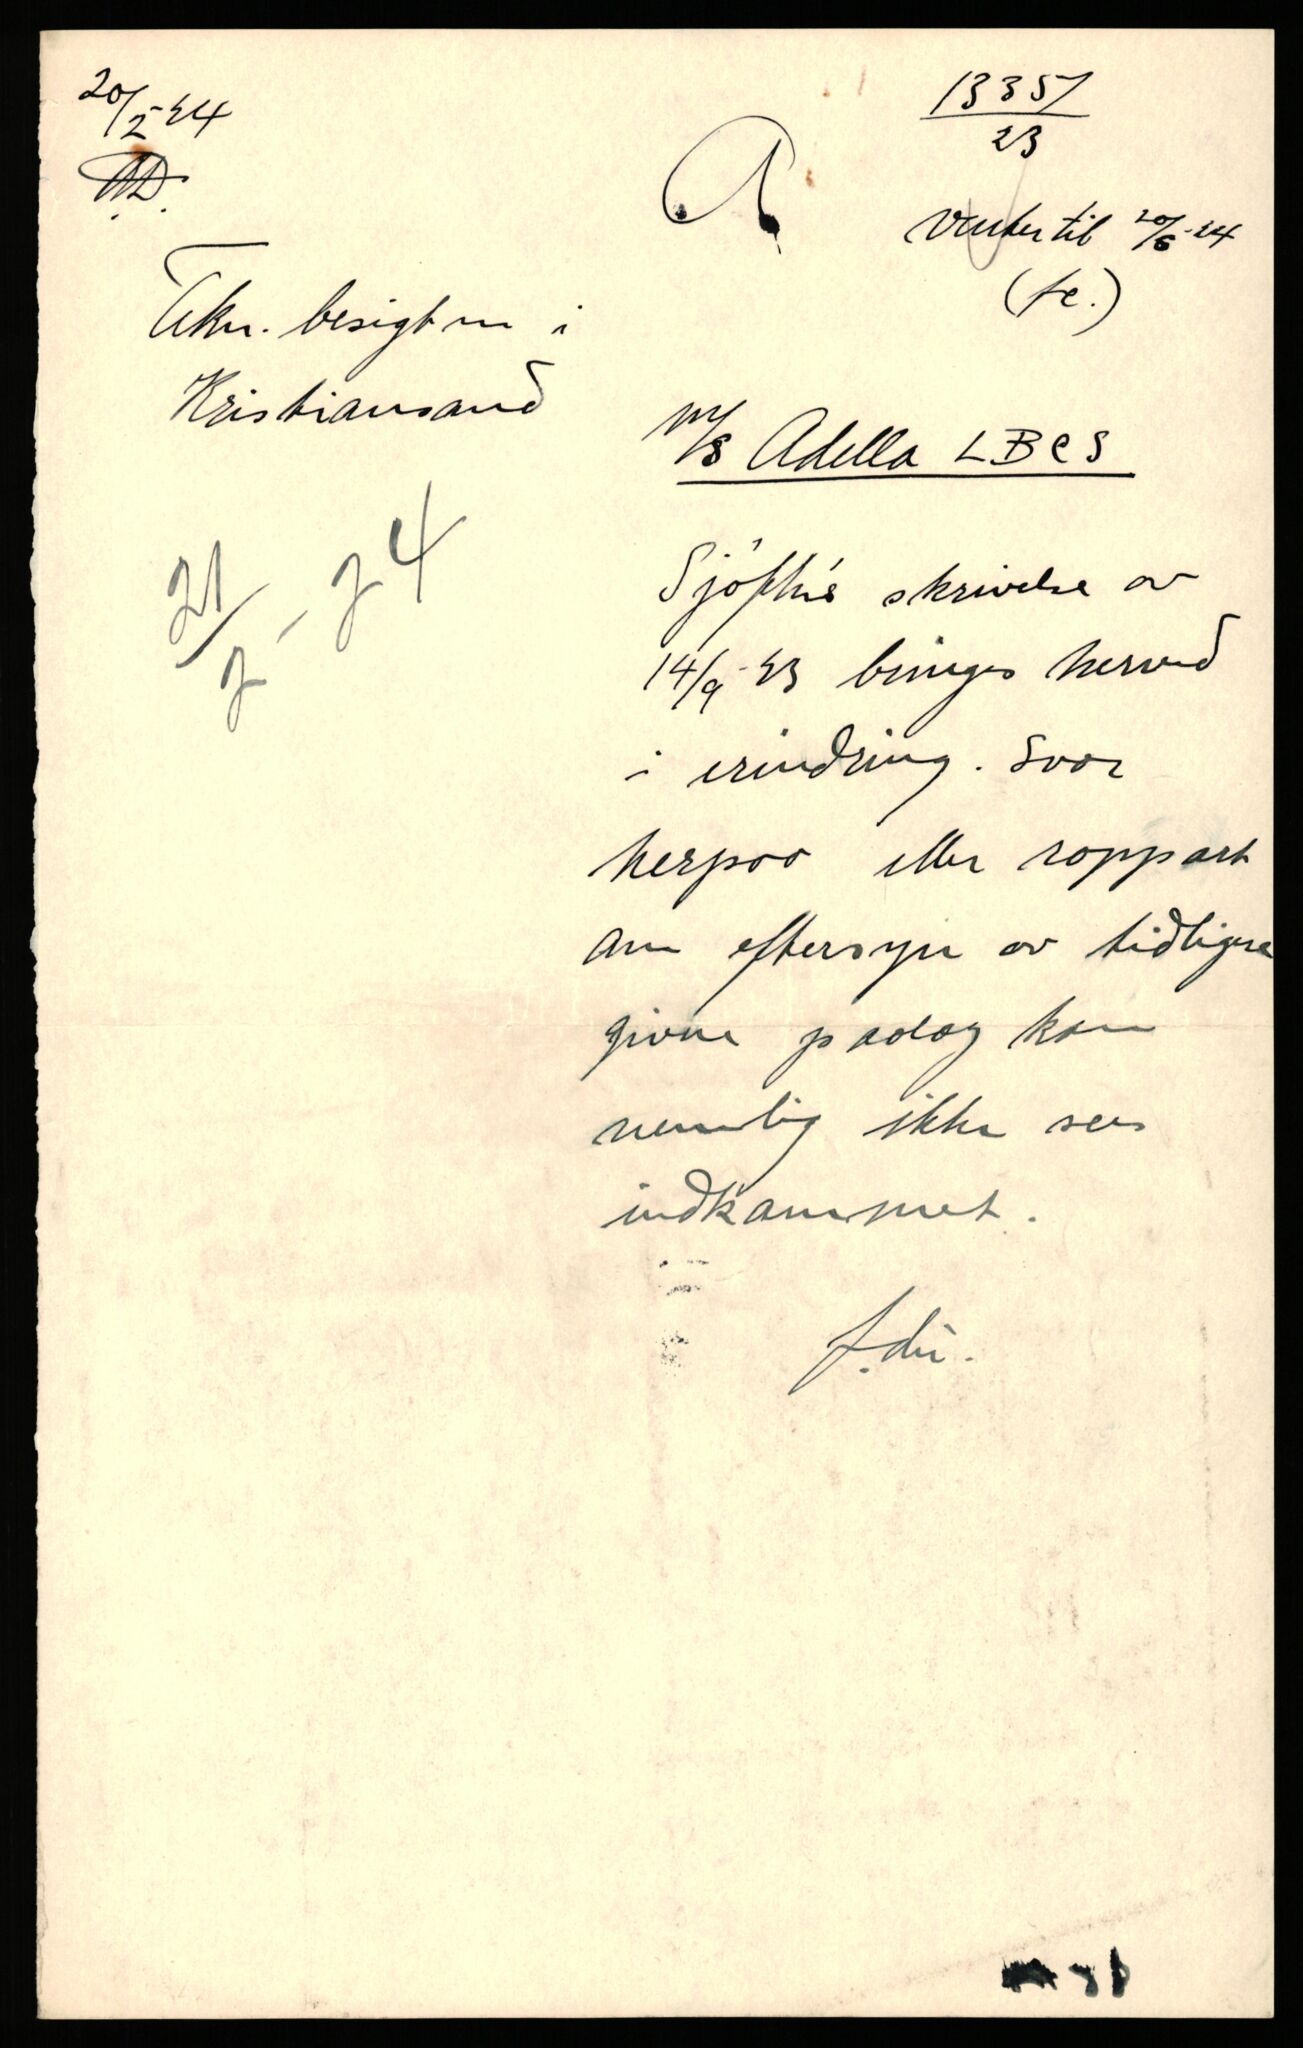 20/2-24
A.D.
A
13357
23
venter til 20/6-24
(fe.)
Tekn. besigt m i
Kristiansand
m/s Adella LBCS
21/2-24
Sjöfk's skrivelse av
14/9-23 bringes herved
i erindring. Svar
herpaa eller rapport
om eftersyn av tidligere
givne paalæg kan
nemlig ikke sees
indkommet.
f. dir.